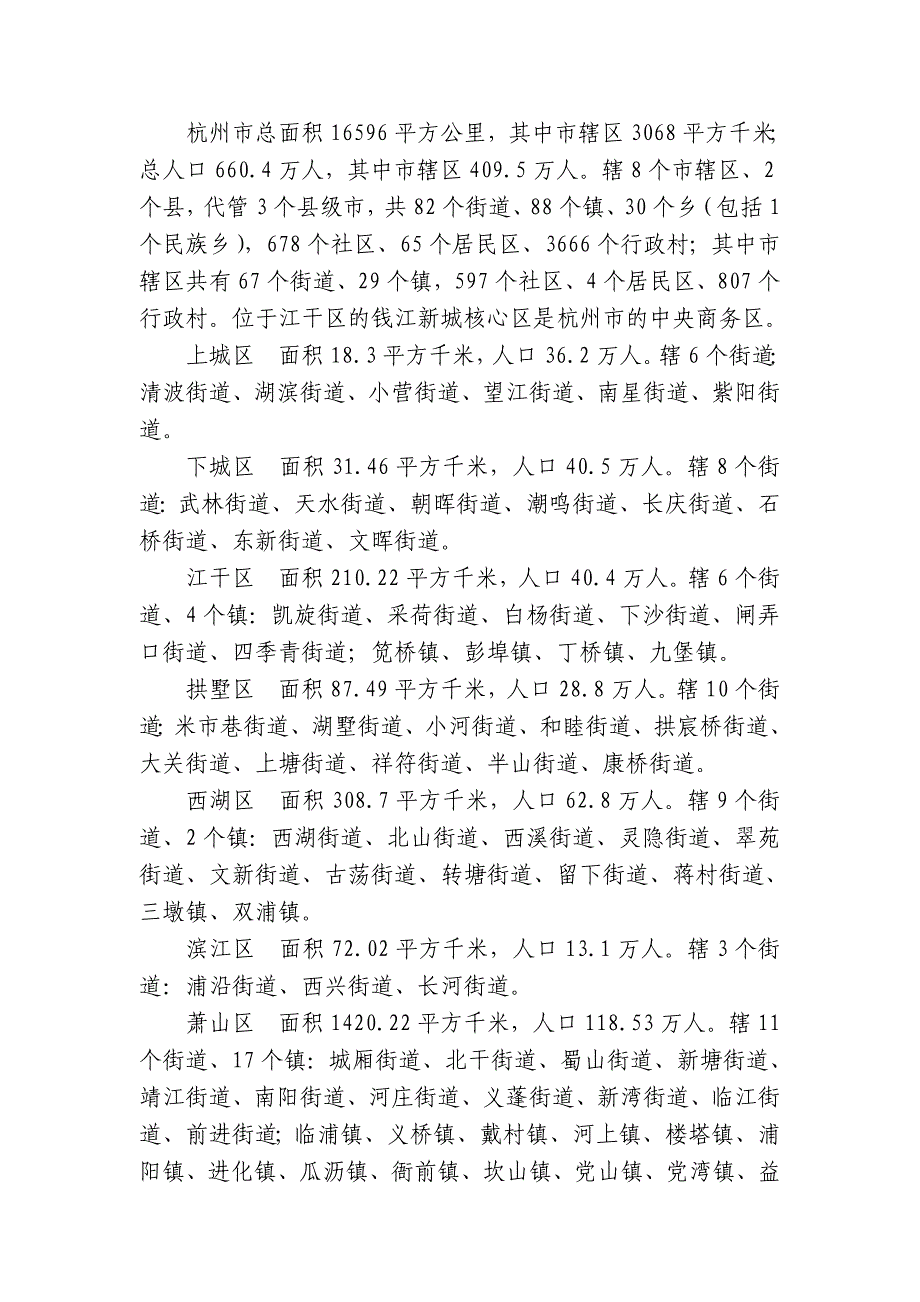 杭州市总面积 16596 平方公里，其中市辖区 3068 平方千米;
总人口 660.4 万人，其中市辖区 409.5 万人。辖 8 个市辖区、2
个县，代管 3 个县级市，共 82 个街道、88 个镇、30 个乡（包括 1
个民族乡），678 个社区、65 个居民区、3666 个行政村；其中市
辖区共有 67 个街道、29 个镇，597 个社区、4 个居民区、807 个
行政村。位于江干区的钱江新城核心区是杭州市的中央商务区。
上城区　面积 18.3 平方千米，人口 36.2 万人。辖 6 个街道:
清波街道、湖滨街道、小营街道、望江街道、南星街道、紫阳街
道。
下城区　面积 31.46 平方千米，人口 40.5 万人。辖 8 个街
道：武林街道、天水街道、朝晖街道、潮鸣街道、长庆街道、石
桥街道、东新街道、文晖街道。
江干区　面积 210.22 平方千米，人口 40.4 万人。辖 6 个街
道、4 个镇：凯旋街道、采荷街道、白杨街道、下沙街道、闸弄
口街道、四季青街道；笕桥镇、彭埠镇、丁桥镇、九堡镇。
拱墅区　面积 87.49 平方千米，人口 28.8 万人。辖 10 个街
道：米市巷街道、湖墅街道、小河街道、和睦街道、拱宸桥街道、
大关街道、上塘街道、祥符街道、半山街道、康桥街道。
西湖区　面积 308.7 平方千米，人口 62.8 万人。辖 9 个街
道、2 个镇：西湖街道、北山街道、西溪街道、灵隐街道、翠苑
街道、文新街道、古荡街道、转塘街道、留下街道、蒋村街道、
三墩镇、双浦镇。
滨江区　面积 72.02 平方千米，人口 13.1 万人。辖 3 个街
道：浦沿街道、西兴街道、长河街道。
萧山区　面积 1420.22 平方千米，人口 118.53 万人。辖 11
个街道、17 个镇：城厢街道、北干街道、蜀山街道、新塘街道、
靖江街道、南阳街道、河庄街道、义蓬街道、新湾街道、临江街
道、前进街道；临浦镇、义桥镇、戴村镇、河上镇、楼塔镇、浦
阳镇、进化镇、瓜沥镇、衙前镇、坎山镇、党山镇、党湾镇、益